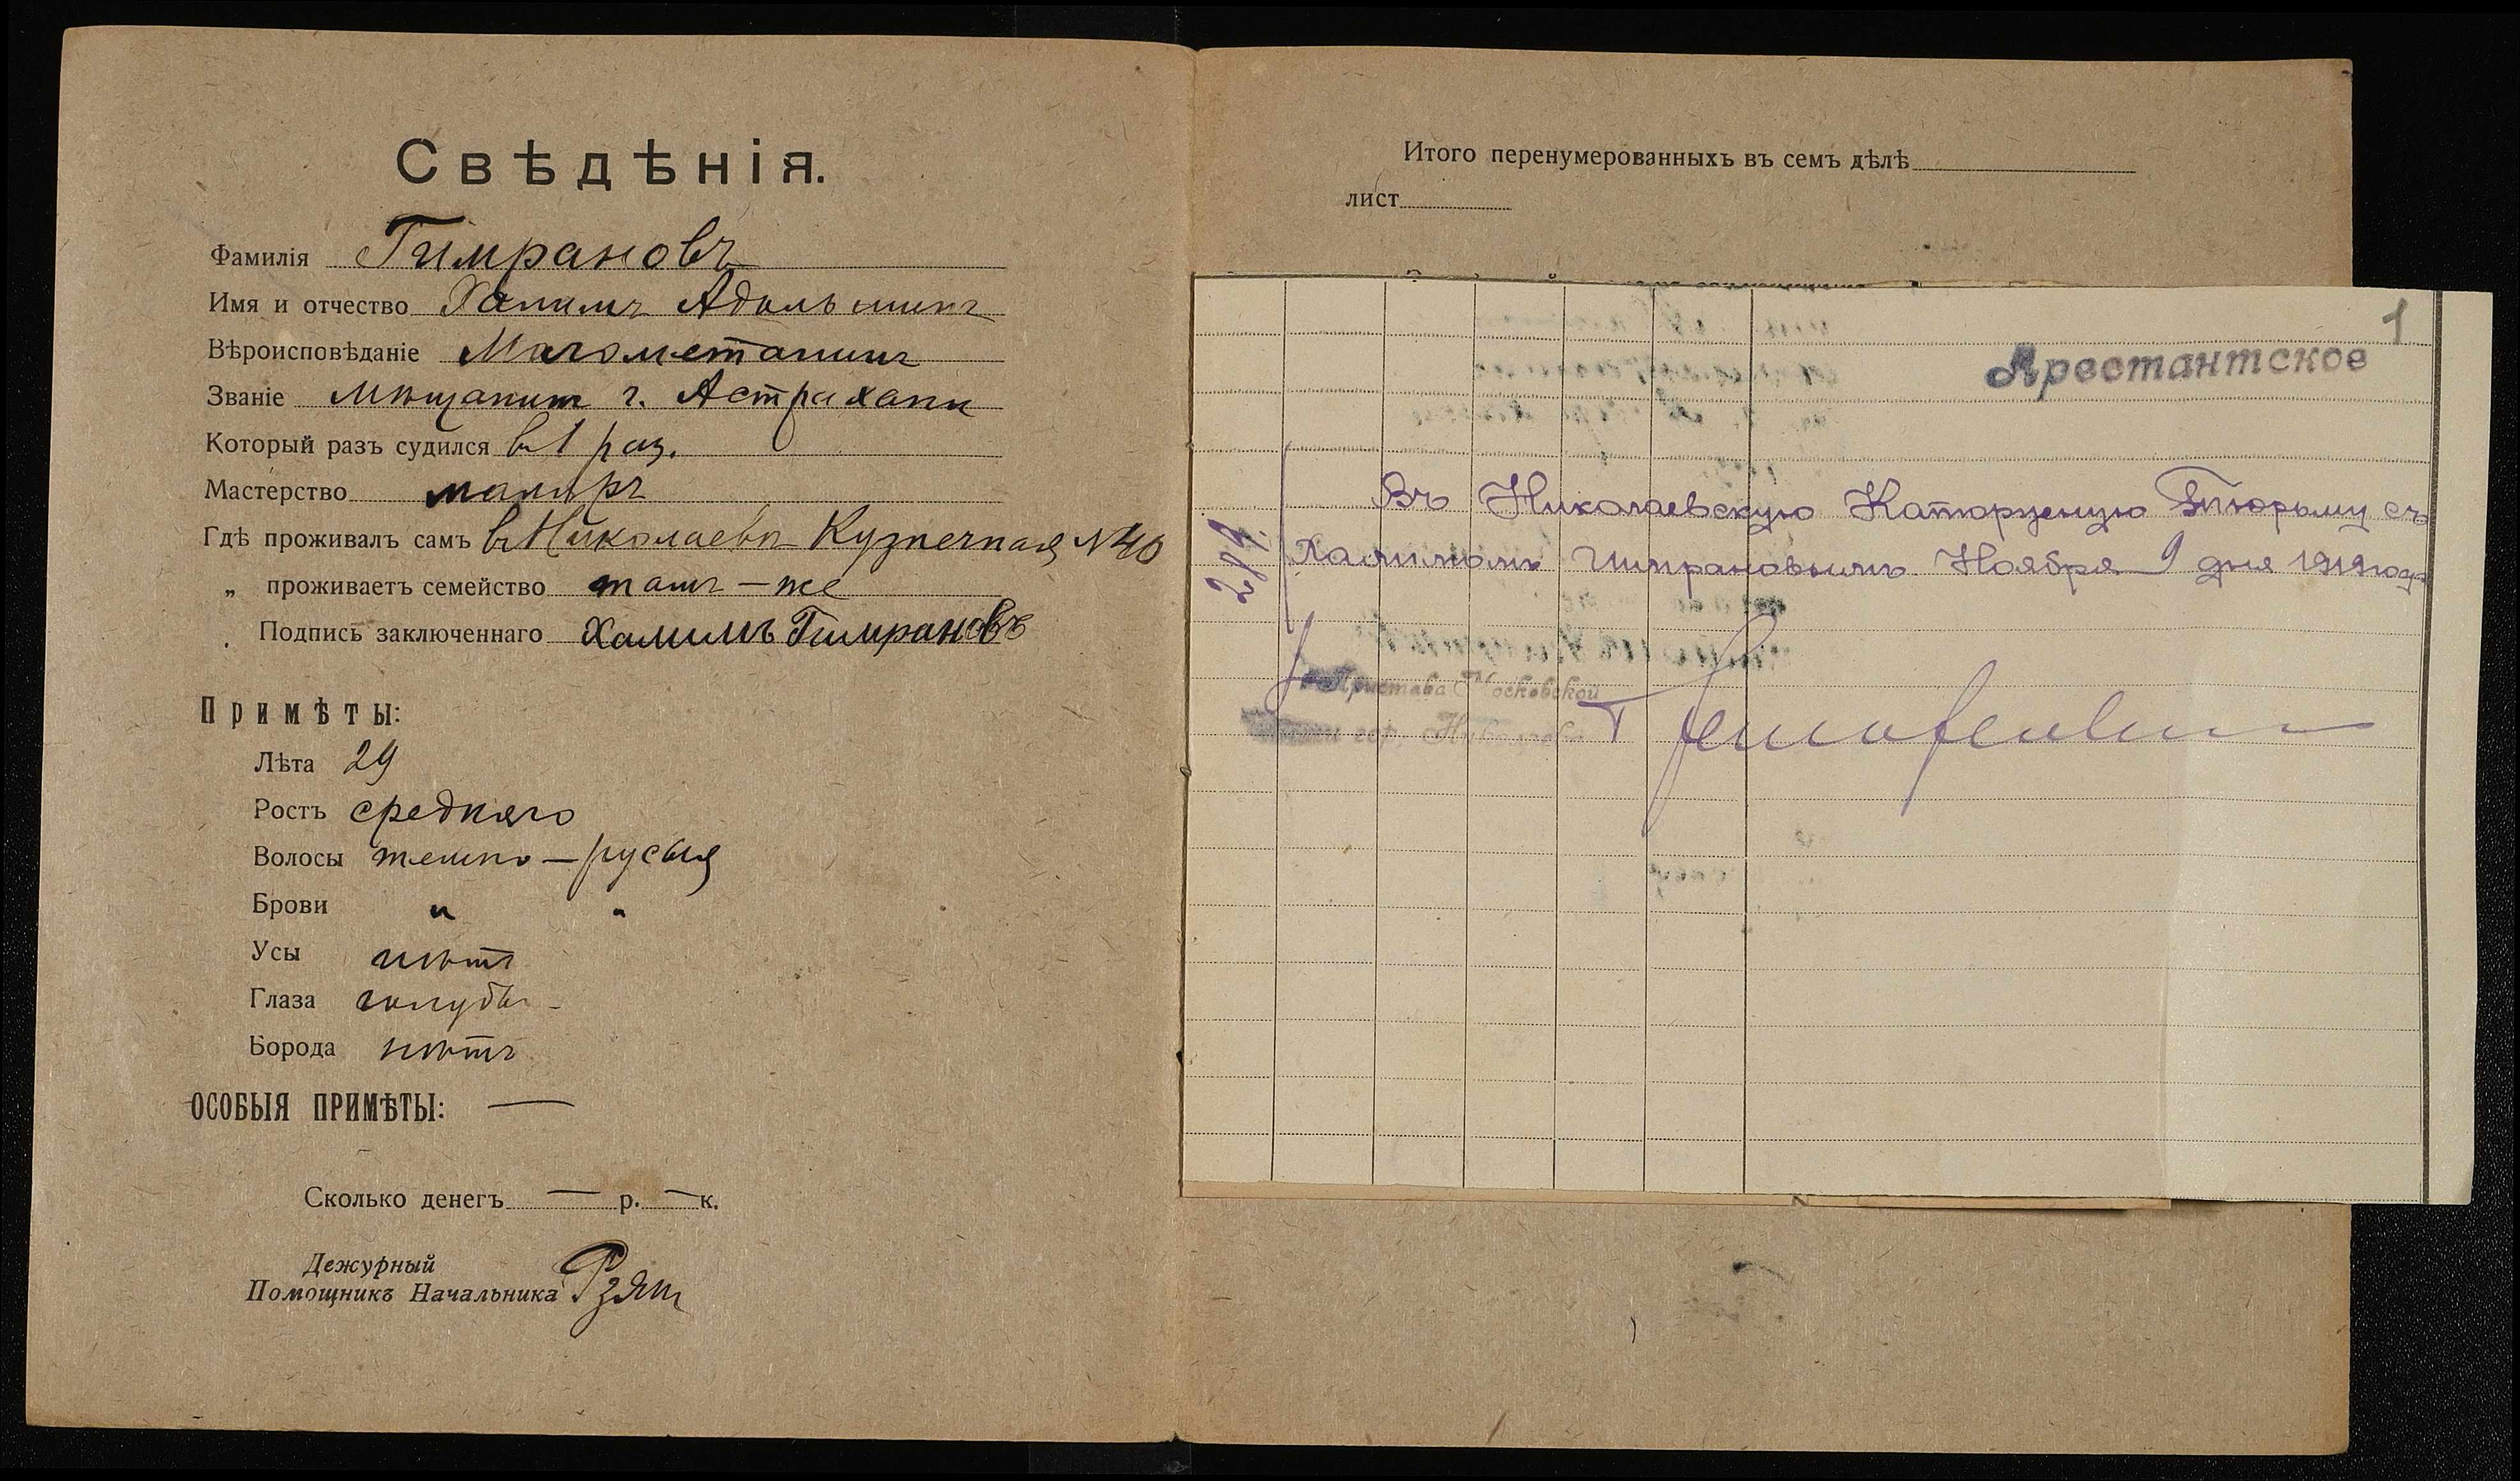 Свѣдѣнія.
Фамилія Гимрановъ
Имя и отчество Халимъ Адольшинъ
Вѣроисповѣданіе Магометанинъ
Званіе Мѣщанинъ г. Астрахани
Который разъ судился в 1 раз.
Мастерство маляръ
Гдѣ проживалъ самъ в Николаевѣ Кузнечная №40
„ проживаетъ семейство тамъ-же
Подпись заключеннаго Халимъ Гимрановъ
Примѣты:
Лѣта 29
Ростъ средняго
Волосы темно-русыя
Брови " "
Усы нѣтъ
Глаза голубы
Борода нѣтъ
ОСОБЫЯ ПРИМѢТЫ: —
Сколько денегъ — р. — к.
Дежурный
Помощникъ Начальника
Итого перенумерованныхъ въ семъ дѣлѣ
лист
1
Арестантское
Въ Николаевскую Каторжную Тюрьму съ
Халимомъ Гимрановымъ Ноября 9 дня 1919 года
Пристава Московской
гор. Николаева